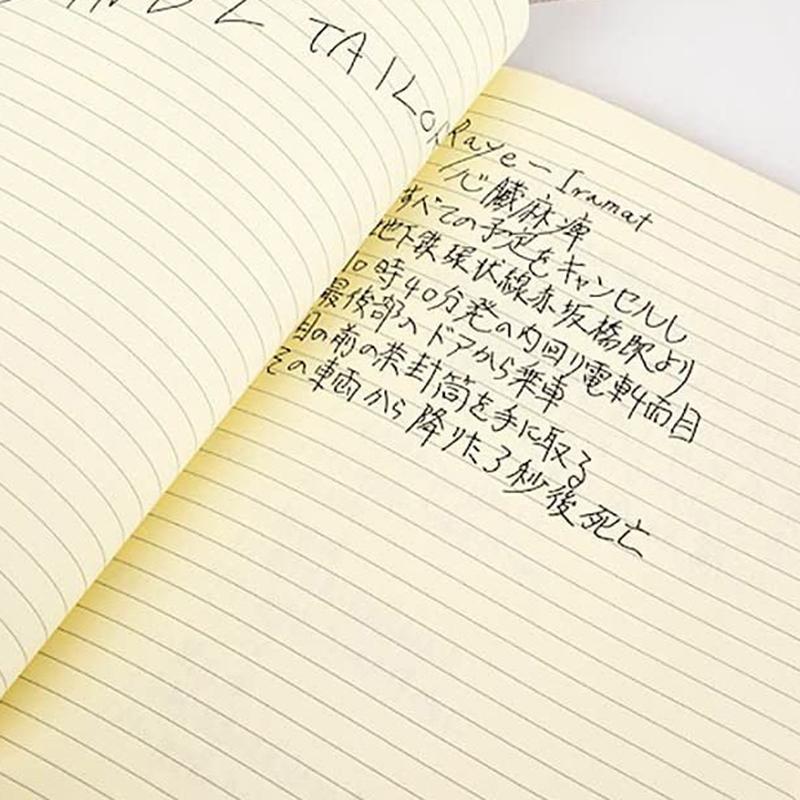 L TAILOR
Raye - Iramat
心臓麻痺
すべての予定をキャンセルし
地下鉄環状線赤坂橋駅より
10時40分発の内回り電車4両目
最後部のドアから乗車
目の前の茶封筒を手に取る
その車両から降りた3秒後死亡